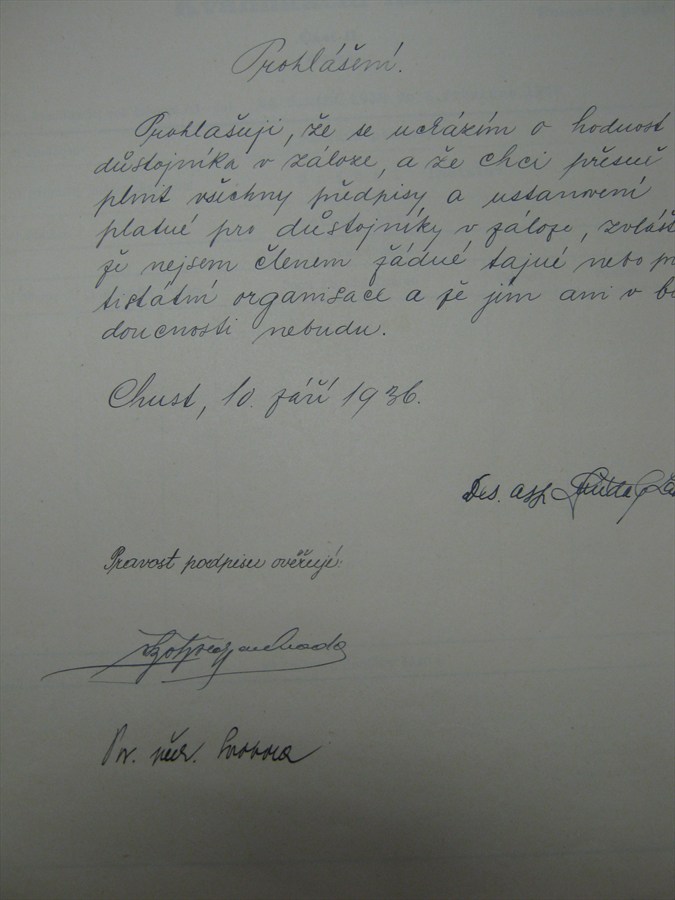 Prohlášení.
Prohlašuji, že se ucházím o hodnost
důstojníka v záloze, a že chci přesně
plnit všechny předpisy a ustanovení
platné pro důstojníky v záloze, zvlášt
že nejsem členem žádné tajné nebo pr
tistátní organisace a že jím ani v bu
doucnosti nebudu.
Chust, 10. září 1936.
Des. asp.
Pravost podpisu ověřují: